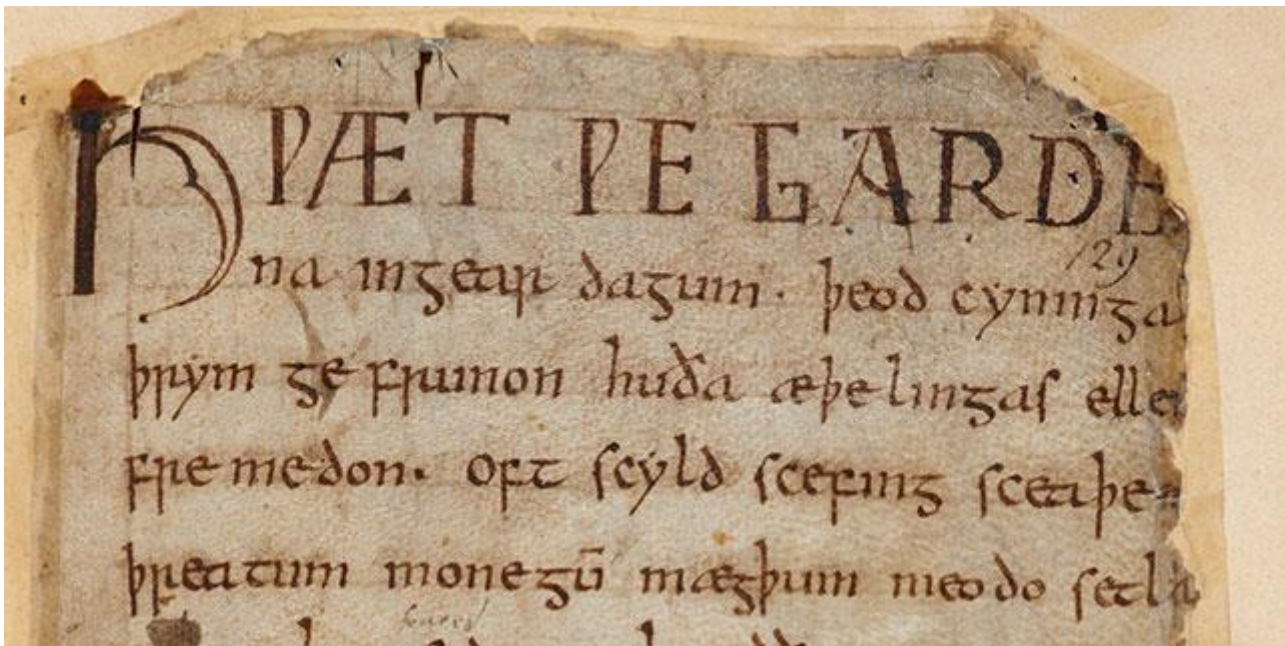 HǷÆT ǷE GARDE
na ingear dagum. þeod cyninga
129
þrym ge frunon huða æþelingas elle
fre medon. oft scyld scefing sceaþe
þreatum monegū mægþum meodo setla